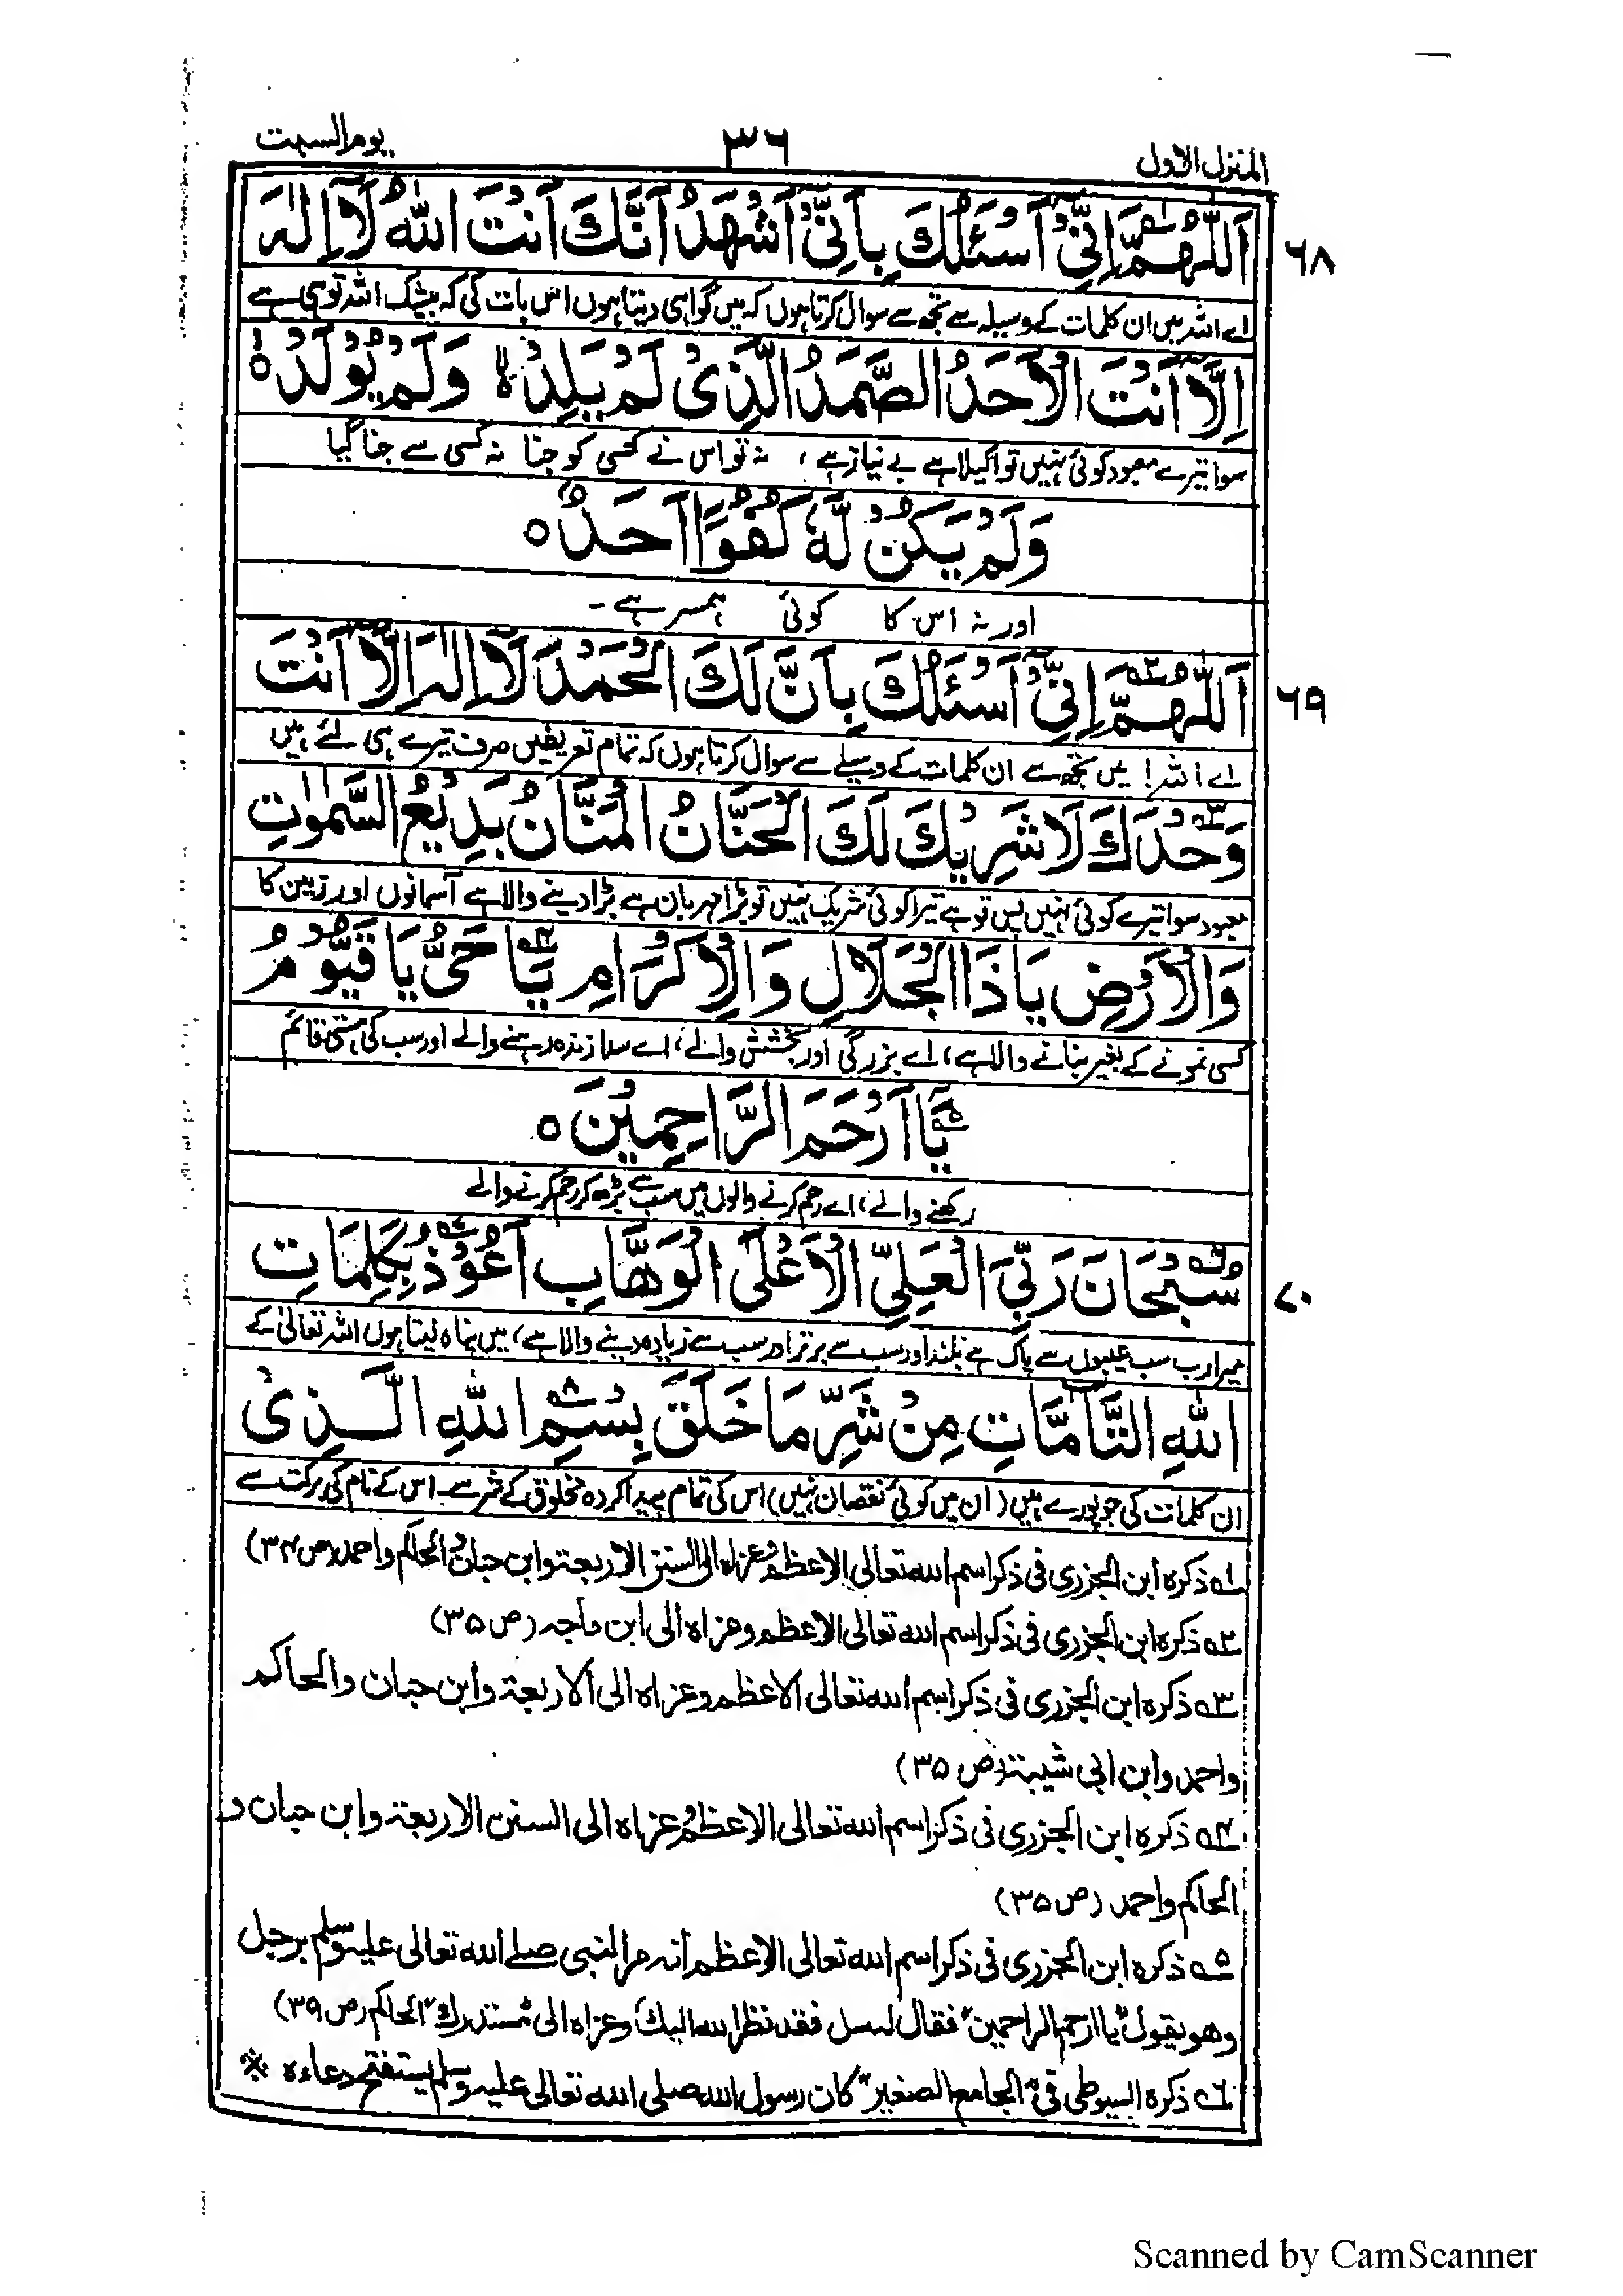 المنزل الاول ٣٦ يوم السبت
٦٨ اَللّٰهُمَّ اِنِّیْٓ اَسْئَلُكَ بِاَنِّیْٓ اَشْهَدُ اَنَّكَ اَنْتَ اللّٰهُ لَآ اِلٰهَ
اے اللہ میں ان کلمات کے وسیلہ سے تجھ سے سوال کرتا ہوں کہ میں گواہی دیتا ہوں اس بات کی کہ بیشک اللہ تو ہی ہے
اِلَّآ اَنْتَ الْاَحَدُ الصَّمَدُ الَّذِیْ لَمْ يَلِدْ ۙ وَلَمْ يُوْلَدْ ۙ
سوا تیرے معبود کوئی نہیں تو اکیلا ہے بے نیاز ہے، نہ تو اس نے کسی کو جنا نہ کسی سے جنا گیا
وَلَمْ يَكُنْ لَّهٗ كُفُوًا اَحَدٌ ○
اور نہ اس کا کوئی ہمسر ہے -
٦٩ اَللّٰهُمَّ اِنِّیْٓ اَسْئَلُكَ بِاَنَّ لَكَ الْحَمْدَ لَآ اِلٰهَ اِلَّآ اَنْتَ
اے اللہ! میں تجھ سے ان کلمات کے وسیلے سے سوال کرتا ہوں کہ تمام تعریفیں صرف تیرے ہی لئے ہیں
وَحْدَكَ لَا شَرِيْكَ لَكَ الْحَنَّانُ الْمَنَّانُ بَدِيْعُ السَّمٰوٰتِ
معبود سوا تیرے کوئی نہیں بس تو ہے تیرا کوئی شریک نہیں تو بڑا مہربان ہے بڑا دینے والا ہے آسمانوں اور زمین کا
وَالْاَرْضِ يَا ذَا الْجَلَالِ وَالْاِكْرَامِ يَا حَیُّ يَا قَيُّوْمُ
کسی نمونے کے بغیر بنانے والا ہے، اے بزرگی اور بخشش والے، اے سدا زندہ رہنے والے اور سب کی ہستی قائم
يَآ اَرْحَمَ الرَّاحِمِيْنَ ○
رکھنے والے، اے رحم کرنے والوں میں سب سے بڑھ کر رحم کرنے والے
٧٠ سُبْحَانَ رَبِّیَ الْعَلِیِّ الْاَعْلَی الْوَهَّابِ اَعُوْذُ بِكَلِمَاتِ
میرا رب سب عیبوں سے پاک ہے بلند اور سب سے برتر اور سب سے زیادہ دینے والا ہے، میں پناہ لیتا ہوں اللہ تعالیٰ کے
اللّٰهِ التَّآمَّاتِ مِنْ شَرِّ مَا خَلَقَ بِسْمِ اللّٰهِ الَّذِیْ
ان کلمات کی جو پورے ہیں (ان میں کوئی نقصان نہیں) اس کی تمام پیدا کردہ مخلوق کے شر سے - اس کے نام کی برکت سے
؎١ ذكره ابن الجزری فی ذكر اسم الله تعالی الاعظم وعزاه الی السنن الاربعة وابن حبان والحاكم واحمد (ص ٣٤)
؎٢ ذكره ابن الجزری فی ذكر اسم الله تعالی الاعظم وعزاه الی ابن ماجه (ص ٣٥)
؎٣ ذكره ابن الجزری فی ذكر اسم الله تعالی الاعظم وعزاه الی الاربعة وابن حبان والحاكم
واحمد وابن ابی شيبة (ص ٣٥)
؎٤ ذكره ابن الجزری فی ذكر اسم الله تعالی الاعظم وعزاه الی السنن الاربعة وابن حبان و
الحاكم واحمد (ص ٣٥)
؎٥ ذكره ابن الجزری فی ذكر اسم الله تعالی الاعظم انه مر النبی صلے الله تعالی عليه وسلم برجل
وهو يقول "يا ارحم الراحمين" فقال له سل فقد نظر الله اليك وعزاه الی "مستدرك" الحاكم (ص ٣٩)
؎٦ ذكره السيوطی فی "الجامع الصغير" كان رسول الله صلی الله تعالی عليه وسلم يستفتح دعاءه ※
Scanned by CamScanner